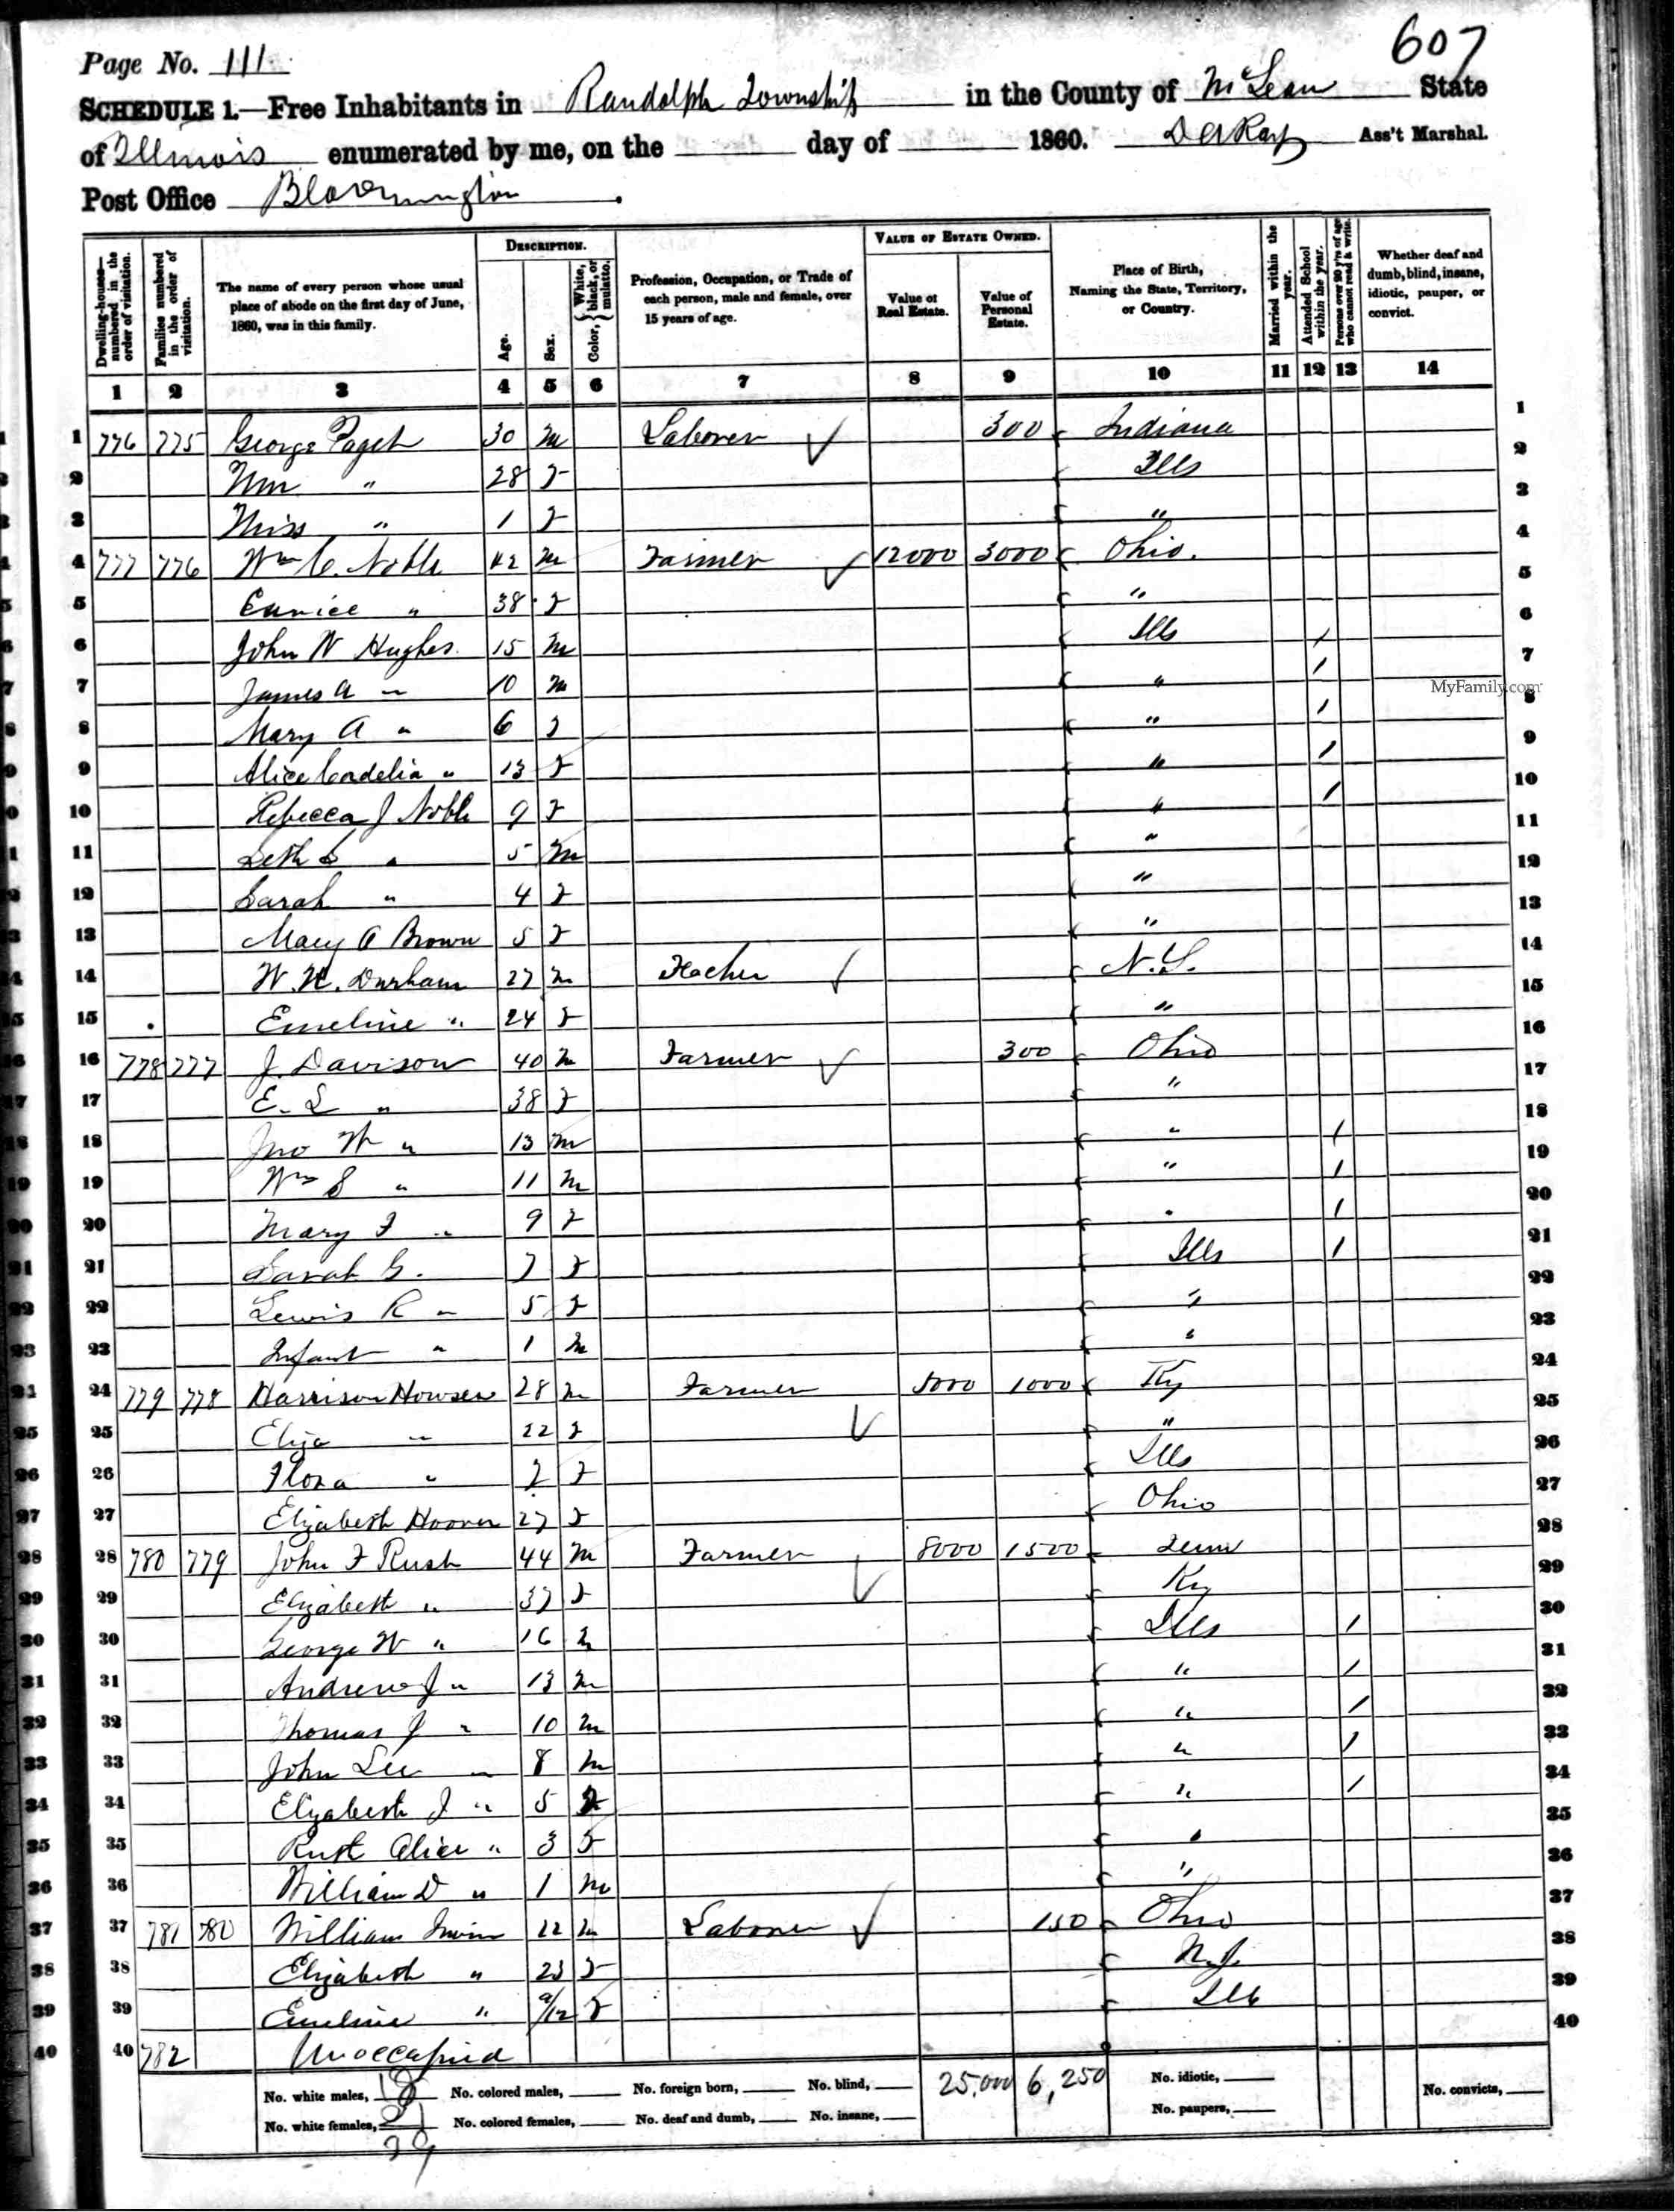 607
Page No. 111
SCHEDULE 1.—Free Inhabitants in Randolph Township in the County of McLean State
of Illinois enumerated by me, on the day of 1860. Ass't Marshal.
Post Office Bloomington.
DESCRIPTION. VALUE OF ESTATE OWNED.
Dwelling-houses—numbered in the order of visitation. Families numbered in the order of visitation. The name of every person whose usual place of abode on the first day of June, 1860, was in this family. Age. Sex. Color, { White, black, or mulatto. Profession, Occupation, or Trade of each person, male and female, over 15 years of age. Value of Real Estate. Value of Personal Estate. Place of Birth, Naming the State, Territory, or Country. Married within the year. Attended School within the year. Persons over 20 y'rs of age who cannot read & write. Whether deaf and dumb, blind, insane, idiotic, pauper, or convict.
1 2 3 4 5 6 7 8 9 10 11 12 13 14
1 776 775 George Paget 30 m Laborer 300 Indiana 1
2 " 28 f Ills 2
3 Miss " 1 f " 3
4 777 776 Wm C. Noble 42 m Farmer 12000 3000 Ohio. 4
5 Eunice " 38 f " 5
6 John W Hughes 15 m Ills / 6
7 James A " 10 m " / 7
MyFamily.com
8 Mary A " 6 f " / 8
9 Alice Cordelia " 13 f " / 9
10 Rebecca J Noble 9 f " / 10
11 Seth S " 5 m " 11
12 Sarah " 4 f " 12
13 Mary A Brown 5 f " 13
14 W. H. Durham 27 m Teacher 14
15 Emeline " 24 f " 15
16 778 777 J. Davison 40 m Farmer 300 Ohio 16
17 E. L " 38 f " 17
18 Jno W " 13 m " / 18
19 Wm S " 11 m " / 19
20 Mary F " 9 f " / 20
21 Sarah G. 7 f Ills / 21
22 Lewis R " 5 f " 22
23 Infant " 1 m " 23
24 779 778 Harrison Howser 28 m Farmer 5000 1000 Ky 24
25 Eliza " 22 f " 25
26 Flora " 2 f Ills 26
27 Elizabeth Hoover 27 f Ohio 27
28 780 779 John F Rush 44 m Farmer 8000 1500 Tenn 28
29 Elizabeth " 37 f Ky 29
30 George W " 16 m Ills / 30
31 Andrew J " 13 m " / 31
32 Thomas J " 10 m " / 32
33 John Lee " 8 m " / 33
34 Elizabeth J " 5 f " / 34
35 Alice " 3 f " 35
36 William D " 1 m " 36
37 781 780 William Irvin 22 m Laborer 150 Ohio 37
38 Elizabeth " 23 f N.J. 38
39 Emeline " 9/12 f Ills 39
40 782 Unoccupied 40
No. white males, 18 No. colored males, No. foreign born, No. blind, 25,000 6,250 No. idiotic, No. convicts,
No. white females, 21 No. colored females, No. deaf and dumb, No. insane, No. paupers,
39